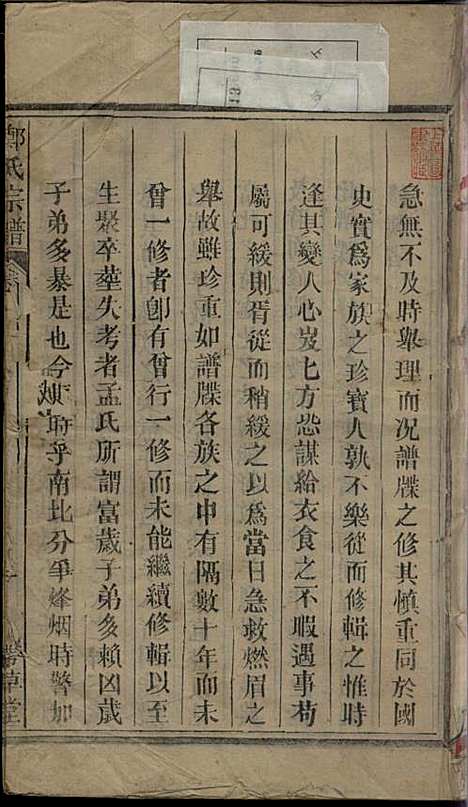 急無不及時舉理而况譜牒之修其慎重同於國
史實爲家族之珍寳人孰不樂從而修輯之惟時
逢其變人心岌七方恐謀給衣食之不暇遇事茍
屬可緩則胥從而稍緩之以爲當日急救燃眉之
舉故雖珍重如譜牒各族之中有隔數十年而未
曾一修者卽有曾行一修而未能繼續修輯以至
生聚卒塟失考者孟氏所謂富歲子弟多賴凶歲
子弟多暴是也今時乎南北分爭烽烟時警加
鄭氏宗譜
草堂